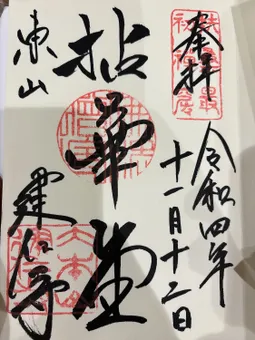 奉拝
令和四年
十一月十二日
拈華堂
東山
建仁寺